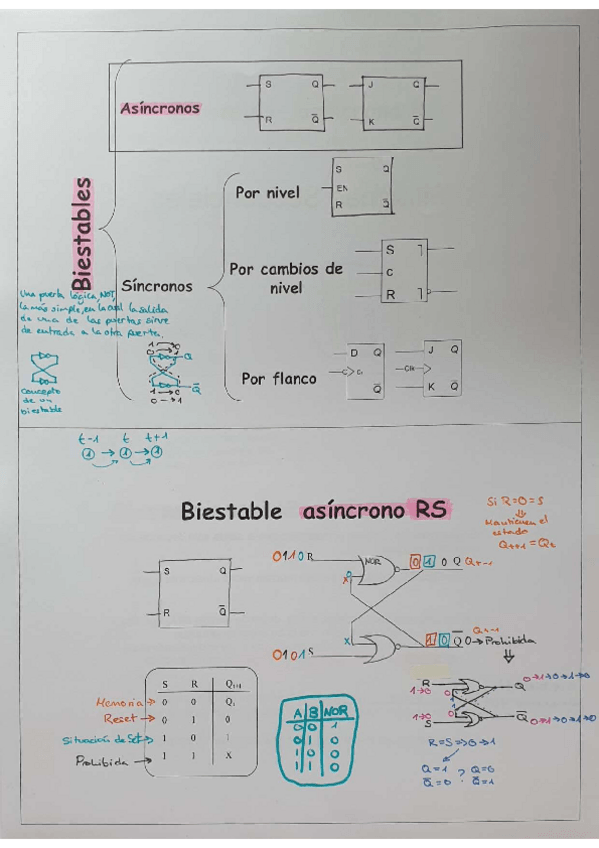 Asíncronos
S Q
R Q̅
J Q
K Q̅
Biestables
Síncronos
Por nivel
S Q
EN
R Q̅
Por cambios de
nivel
S
C
R
Por flanco
D Q
Q̅
J Q
K Q̅
Una puerta lógica, NOT,
la más simple, en la cual la salida
de una de las puertas sirve
de entrada a la otra puerta.
concepto
de un
biestable
1 0
0 1
Q
Q̅
1 → 0
0 → 1
t-1 t t+1
1 → 1 → 1
Biestable asíncrono RS
Si R=0=S
⇓
Mantienen el
estado
Qt+1 = Qt
S Q
R Q̅
0110 R
NOR
0 1 0 Q
0101 S
1 0 Q̅ 0 → Prohibida
S R Qt+1
Memoria → 0 0 Qt
Reset → 0 1 0
Situación de Set → 1 0 1
Prohibida → 1 1 X
A B NOR
0 0 1
0 1 0
1 0 0
1 1 0
R
1→0
Q 0→1→0→1→0
1→0
S
Q̅ 0→1→0→1→0
R=S => 0→1
Q=1 ? Q=0
Q̅=0 Q̅=1